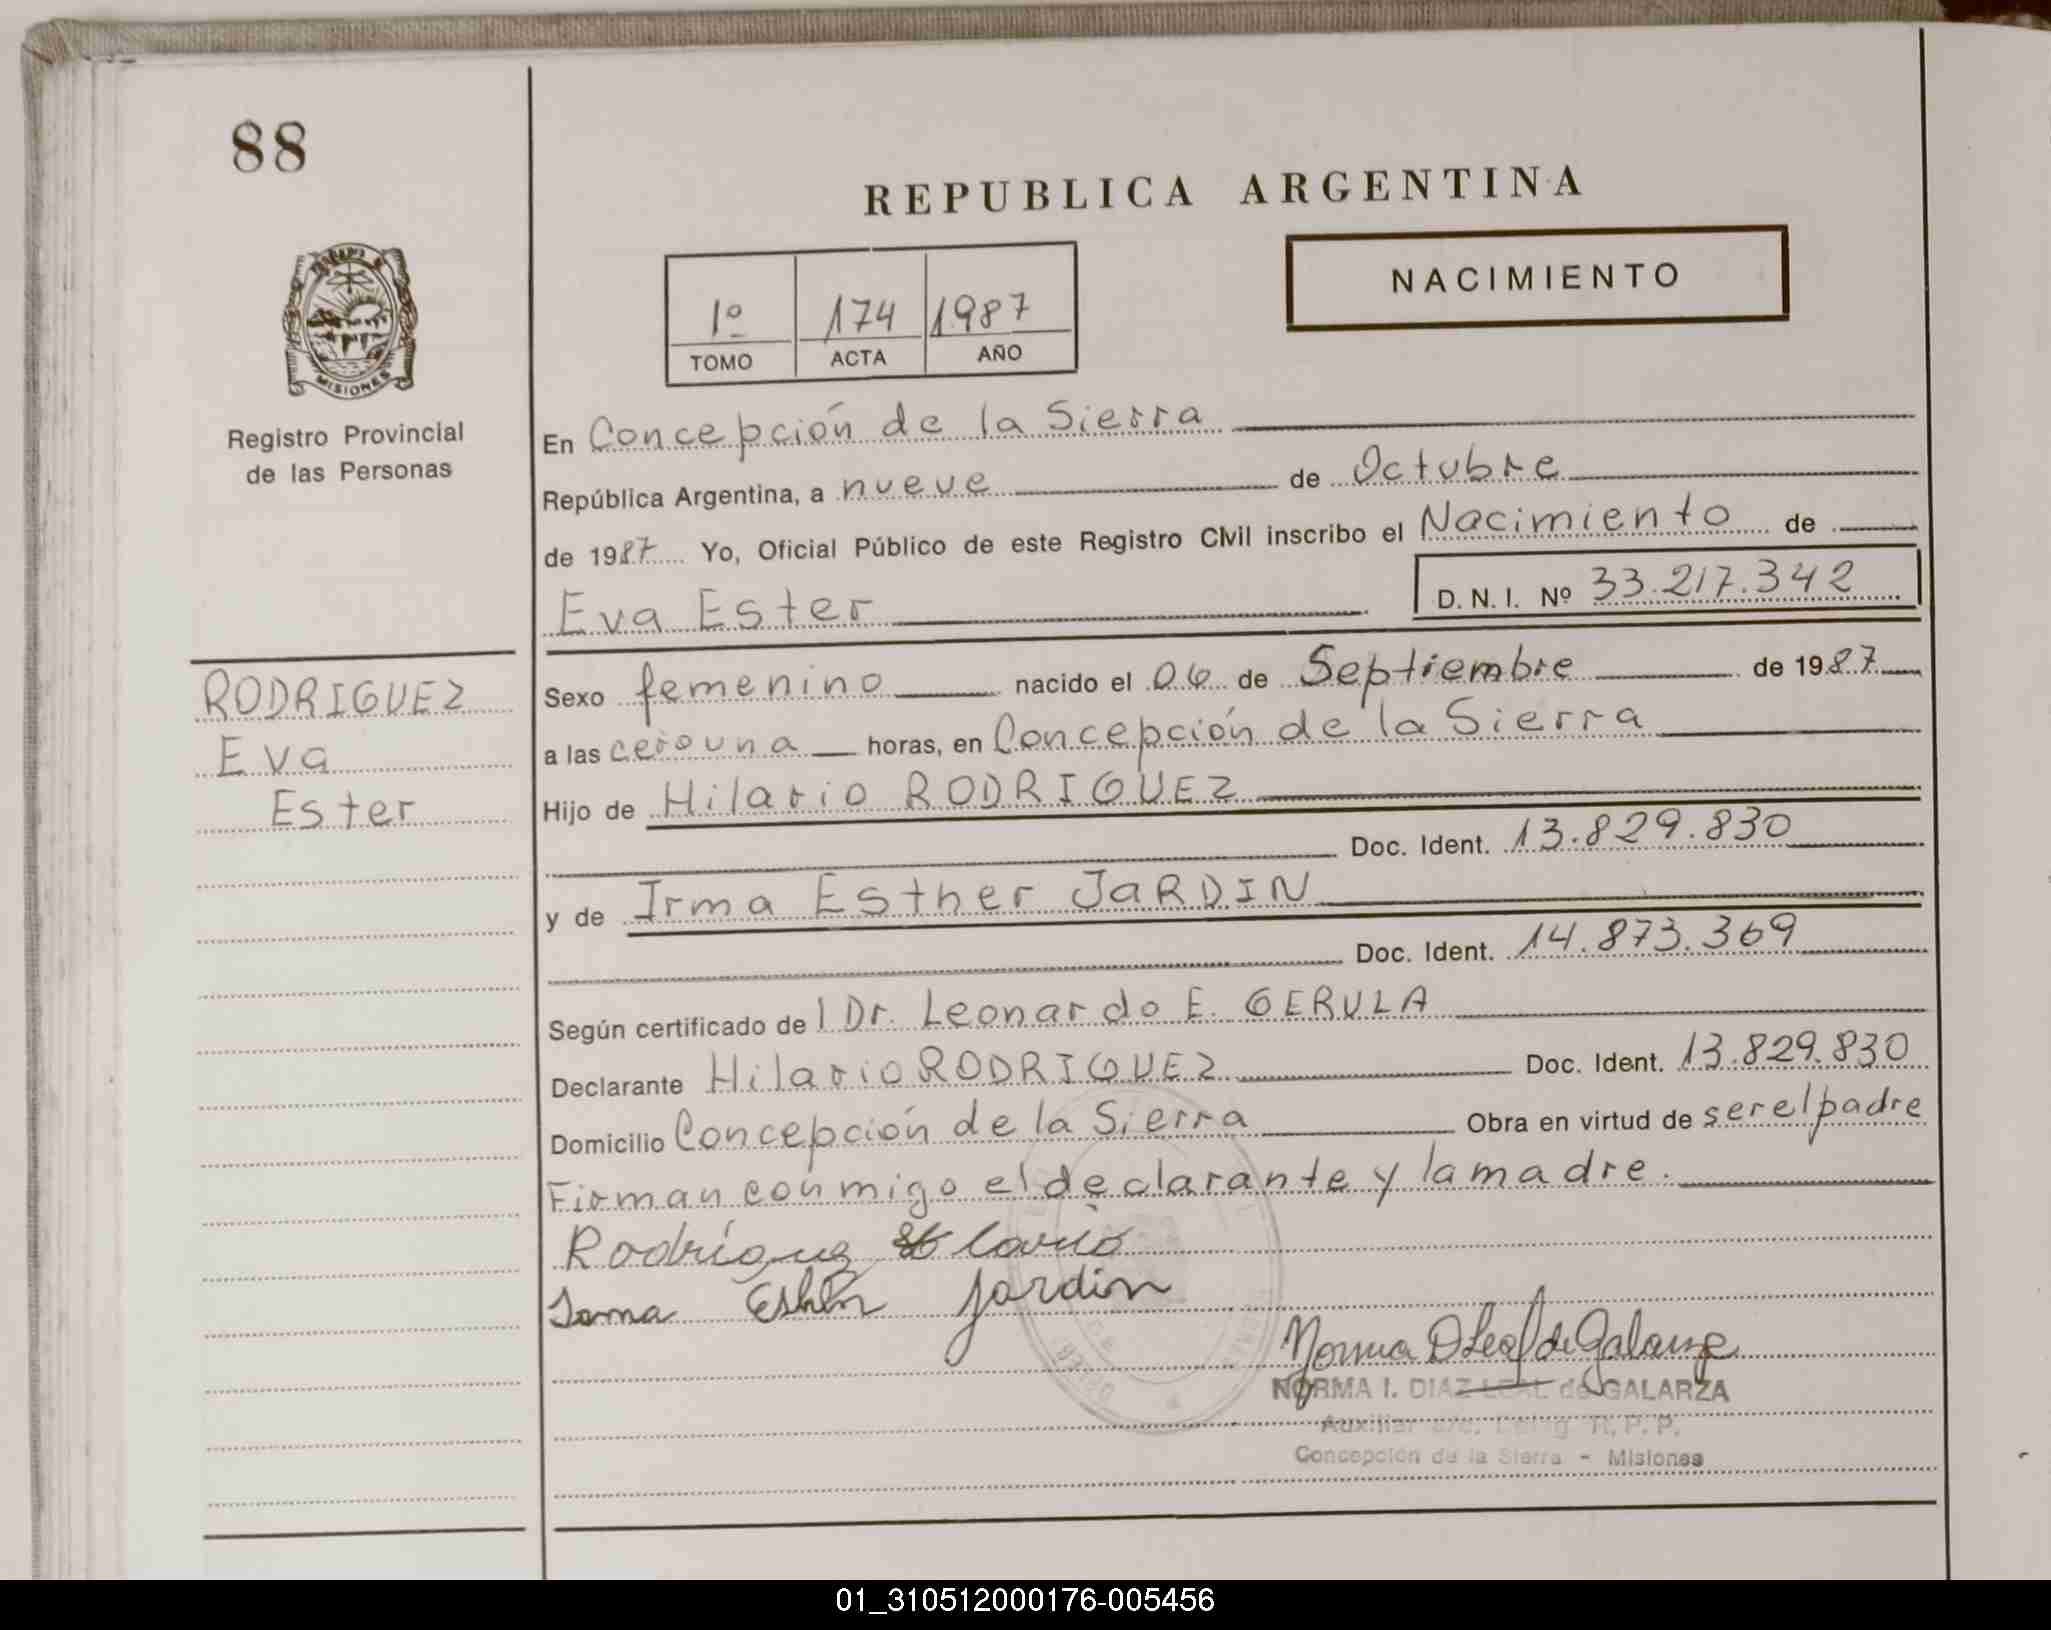 88
REPUBLICA ARGENTINA
NACIMIENTO
1º 174 1987
TOMO ACTA AÑO
MISIONES
Registro Provincial
de las Personas
En Concepción de la Sierra
República Argentina, a nueve de Octubre
de 1987 Yo, Oficial Público de este Registro Civil inscribo el Nacimiento de
Eva Ester D. N. I. Nº 33.217.342
RODRIGUEZ
Eva
Ester
Sexo femenino nacido el 06 de Septiembre de 1987
a las cero una horas, en Concepción de la Sierra
Hijo de Hilario RODRIGUEZ
Doc. Ident. 13.829.830
y de Irma Esther JARDIN
Doc. Ident. 14.873.369
Según certificado de l Dr. Leonardo E. GERULA
Declarante Hilario RODRIGUEZ Doc. Ident. 13.829.830
Domicilio Concepción de la Sierra Obra en virtud de ser el padre
Firman conmigo el declarante y la madre.
Rodríguez
Irma Esther Jardin
Norma D Leal de Galarza
NORMA I. DIAZ LEAL de GALARZA
Auxiliar R. P. P.
Concepción de la Sierra - Misiones
01_310512000176-005456